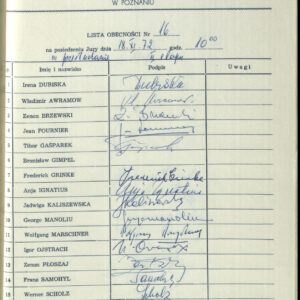 W POZNANIU
LISTA OBECNOŚCI Nr 16
na posiedzeniu Jury dnia 18.XI.72 godz. 10 00
II etapu
Imię i nazwisko Podpis Uwagi
1 Irena DUBISKA IDubiska
2 Wladimir AWRAMOW
3 Zenon BRZEWSKI Z. Brzewski
4 Jean FOURNIER
5 Tibor GAŠPAREK
6 Bronisław GIMPEL
7 Frederick GRINKE Frederick Grinke
8 Anja IGNATIUS Anja Ignatius
9 Jadwiga KALISZEWSKA Kaliszewska
10 George MANOLIU
11 Wolfgang MARSCHNER
12 Igor OJSTRACH
13 Zenon PŁOSZAJ
14 Franz SAMOHYL
15 Werner SCHOLZ Scholz